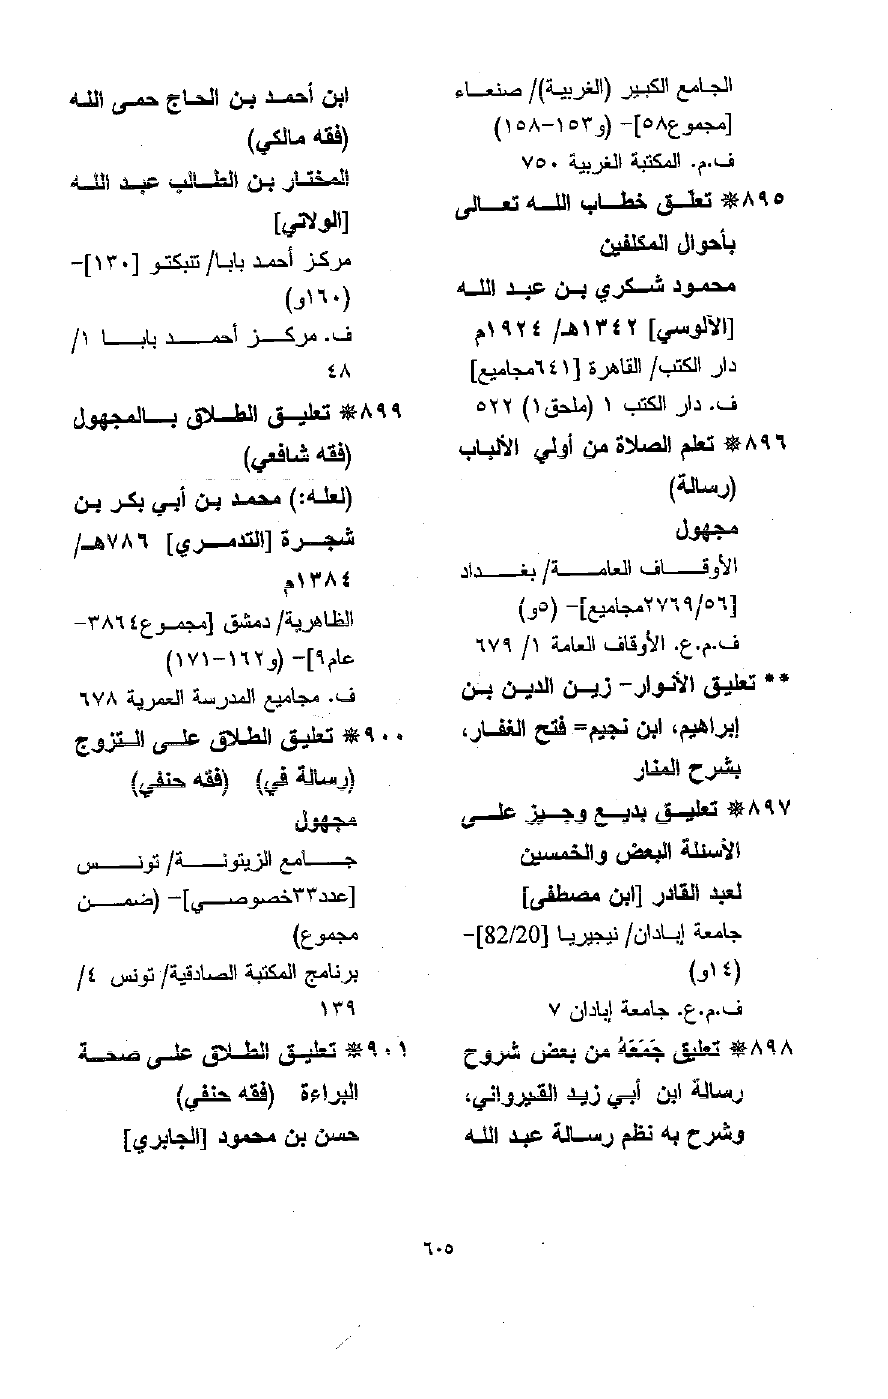 الجامع الكبير (الغربية)/ صنعاء
[مجموع٥٨]- (و١٥٣-١٥٨)
ف.م. المكتبة الغربية ٧٥٠
٨٩٥* تعلّق خطاب الله تعالى
بأحوال المكلفين
محمود شكري بن عبد الله
[الآلوسي] ١٣٤٢هـ/ ١٩٢٤م
دار الكتب/ القاهرة [٦٤١مجاميع]
ف. دار الكتب ١ (ملحق١) ٥٢٢
٨٩٦* تعلم الصلاة من أولي الألباب
(رسالة)
مجهول
الأوقاف العامة/ بغداد
[٢٧٦٩/٥٦مجاميع]- (٥و)
ف.م.ع. الأوقاف العامة ١/ ٦٧٩
** تعليق الأنوار- زين الدين بن
إبراهيم، ابن نجيم= فتح الغفار،
بشرح المنار
٨٩٧* تعليق بديع وجيز على
الأسئلة البعض والخمسين
لعبد القادر [ابن مصطفى]
جامعة إبادان/ نيجيريا [82/20]-
(١٤و)
ف.م.ع. جامعة إبادان ٧
٨٩٨* تعليق جَمَعَهُ من بعض شروح
رسالة ابن أبي زيد القيرواني،
وشرح به نظم رسالة عبد الله
ابن أحمد بن الحاج حمى الله
(فقه مالكي)
المختار بن الطالب عبد الله
[الولاتي]
مركز أحمد بابا/ تنبكتو [١٣٠]-
(١٦٠و)
ف. مركز أحمد بابا ١/
٤٨
٨٩٩* تعليق الطلاق بالمجهول
(فقه شافعي)
(لعله:) محمد بن أبي بكر بن
شجرة [التدمري] ٧٨٦هـ/
١٣٨٤م
الظاهرية/ دمشق [مجموع٣٨٦٤-
عام٩]- (و١٦٢-١٧١)
ف. مجاميع المدرسة العمرية ٦٧٨
٩٠٠* تعليق الطلاق على التزوج
(رسالة في) (فقه حنفي)
مجهول
جامع الزيتونة/ تونس
[عدد٣٣خصوصي]- (ضمن
مجموع)
برنامج المكتبة الصادقية/ تونس ٤/
١٣٩
٩٠١* تعليق الطلاق على صحة
البراءة (فقه حنفي)
حسن بن محمود [الجابري]
٦٠٥